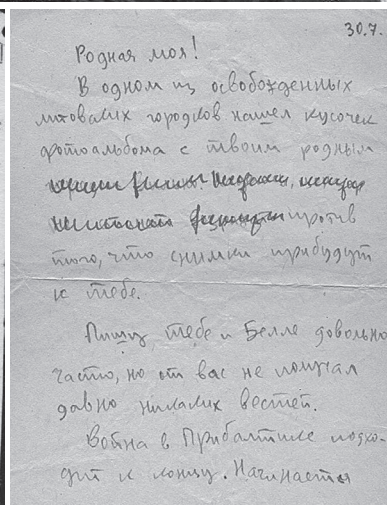 30.7.
Родная моя!
В одном из освобожденных
литовских городков нашел кусочек
фотоальбома с твоим родным
против
того, что снимки прибудут
к тебе.
Пишу тебе и Белле довольно
часто, но от вас не получал
давно никаких вестей.
Война в Прибалтике подхо-
дит к концу. Начинается